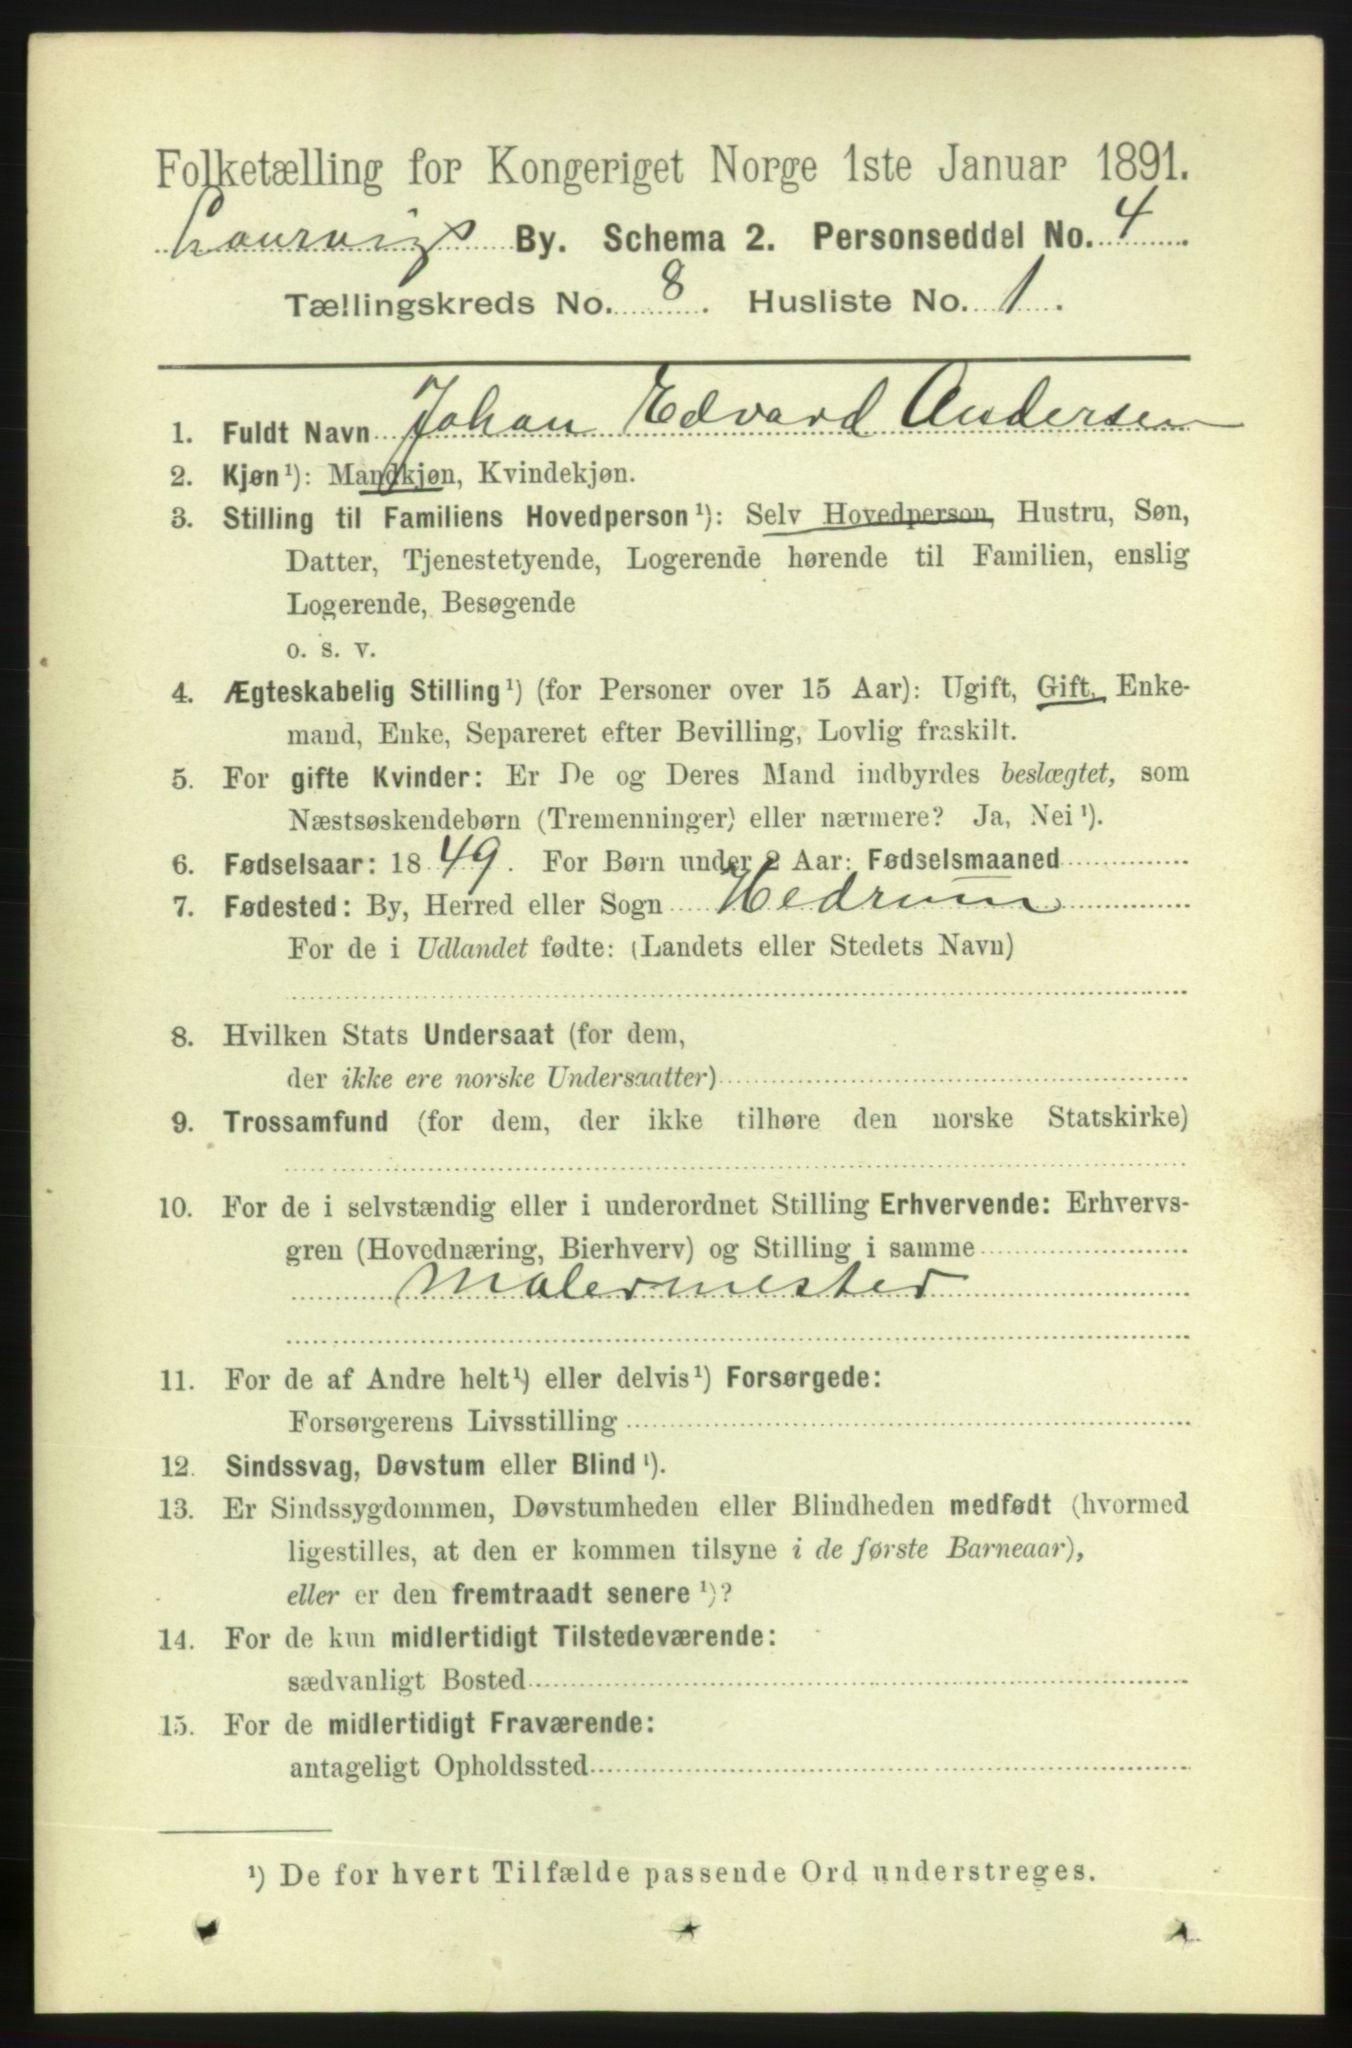 Folketælling for Kongeriget Norge 1ste Januar 1891.
Laurvigs By. Schema 2. Personseddel No. 4.
Tællingskreds No. 8. Husliste No. 1.
1. Fuldt Navn Johan Edvard Andersen
2. Kjøn¹): Mandkjøn, Kvindekjøn.
3. Stilling til Familiens Hovedperson¹): Selv Hovedperson, Hustru, Søn,
Datter, Tjenestetyende, Logerende hørende til Familien, enslig
Logerende, Besøgende
o. s. v.
4. Ægteskabelig Stilling¹) (for Personer over 15 Aar): Ugift, Gift, Enke-
mand, Enke, Separeret efter Bevilling, Lovlig fraskilt.
5. For gifte Kvinder: Er De og Deres Mand indbyrdes beslægtet, som
Næstsøskendebørn (Tremenninger) eller nærmere? Ja, Nei¹).
6. Fødselsaar: 1849. For Børn under 2 Aar: Fødselsmaaned
7. Fødested: By, Herred eller Sogn Hedrum
For de i Udlandet fødte: (Landets eller Stedets Navn)
8. Hvilken Stats Undersaat (for dem,
der ikke ere norske Undersaatter)
9. Trossamfund (for dem, der ikke tilhøre den norske Statskirke)
10. For de i selvstændig eller i underordnet Stilling Erhvervende: Erhvervs-
gren (Hovednæring, Bierhverv) og Stilling i samme
Malermester
11. For de af Andre helt¹) eller delvis¹) Forsørgede:
Forsørgerens Livsstilling
12. Sindssvag, Døvstum eller Blind¹).
13. Er Sindssygdommen, Døvstumheden eller Blindheden medfødt (hvormed
ligestilles, at den er kommen tilsyne i de første Barneaar),
eller er den fremtraadt senere¹)?
14. For de kun midlertidigt Tilstedeværende:
sædvanligt Bosted
15. For de midlertidigt Fraværende:
antageligt Opholdssted
¹) De for hvert Tilfælde passende Ord understreges.